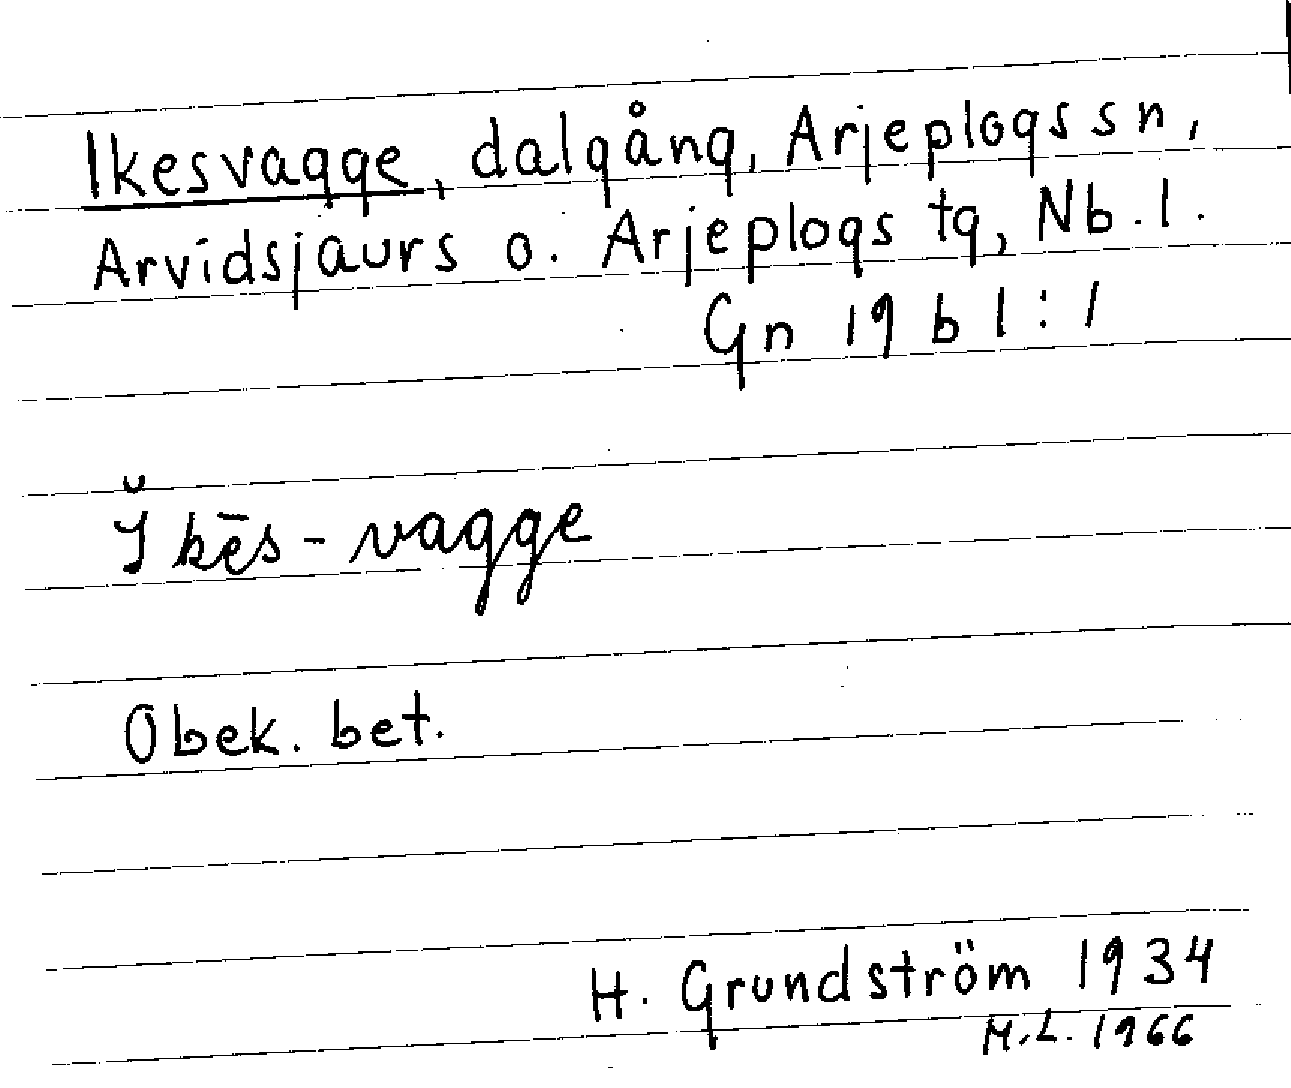 Ikesvagge, dalgång, Arjeplogs sn,
Arvidsjaurs o. Arjeplogs tg, Nb. l.
Gn 19 b 1 : 1
Ĭkēs-vagge
Obek. bet.
H. Grundström 1934
M.L. 1966